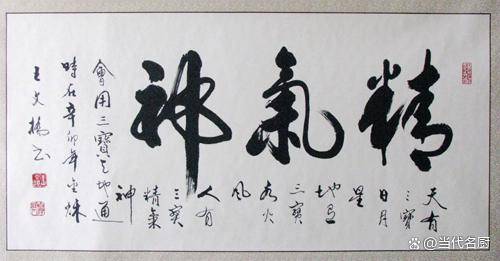 精氣神
天有
三寶
日月
星
地有
三寶
水火
風
人有
三寶
精氣
神
會用三寶天地通
時在辛卯年金秋
王文書
@当代名厨